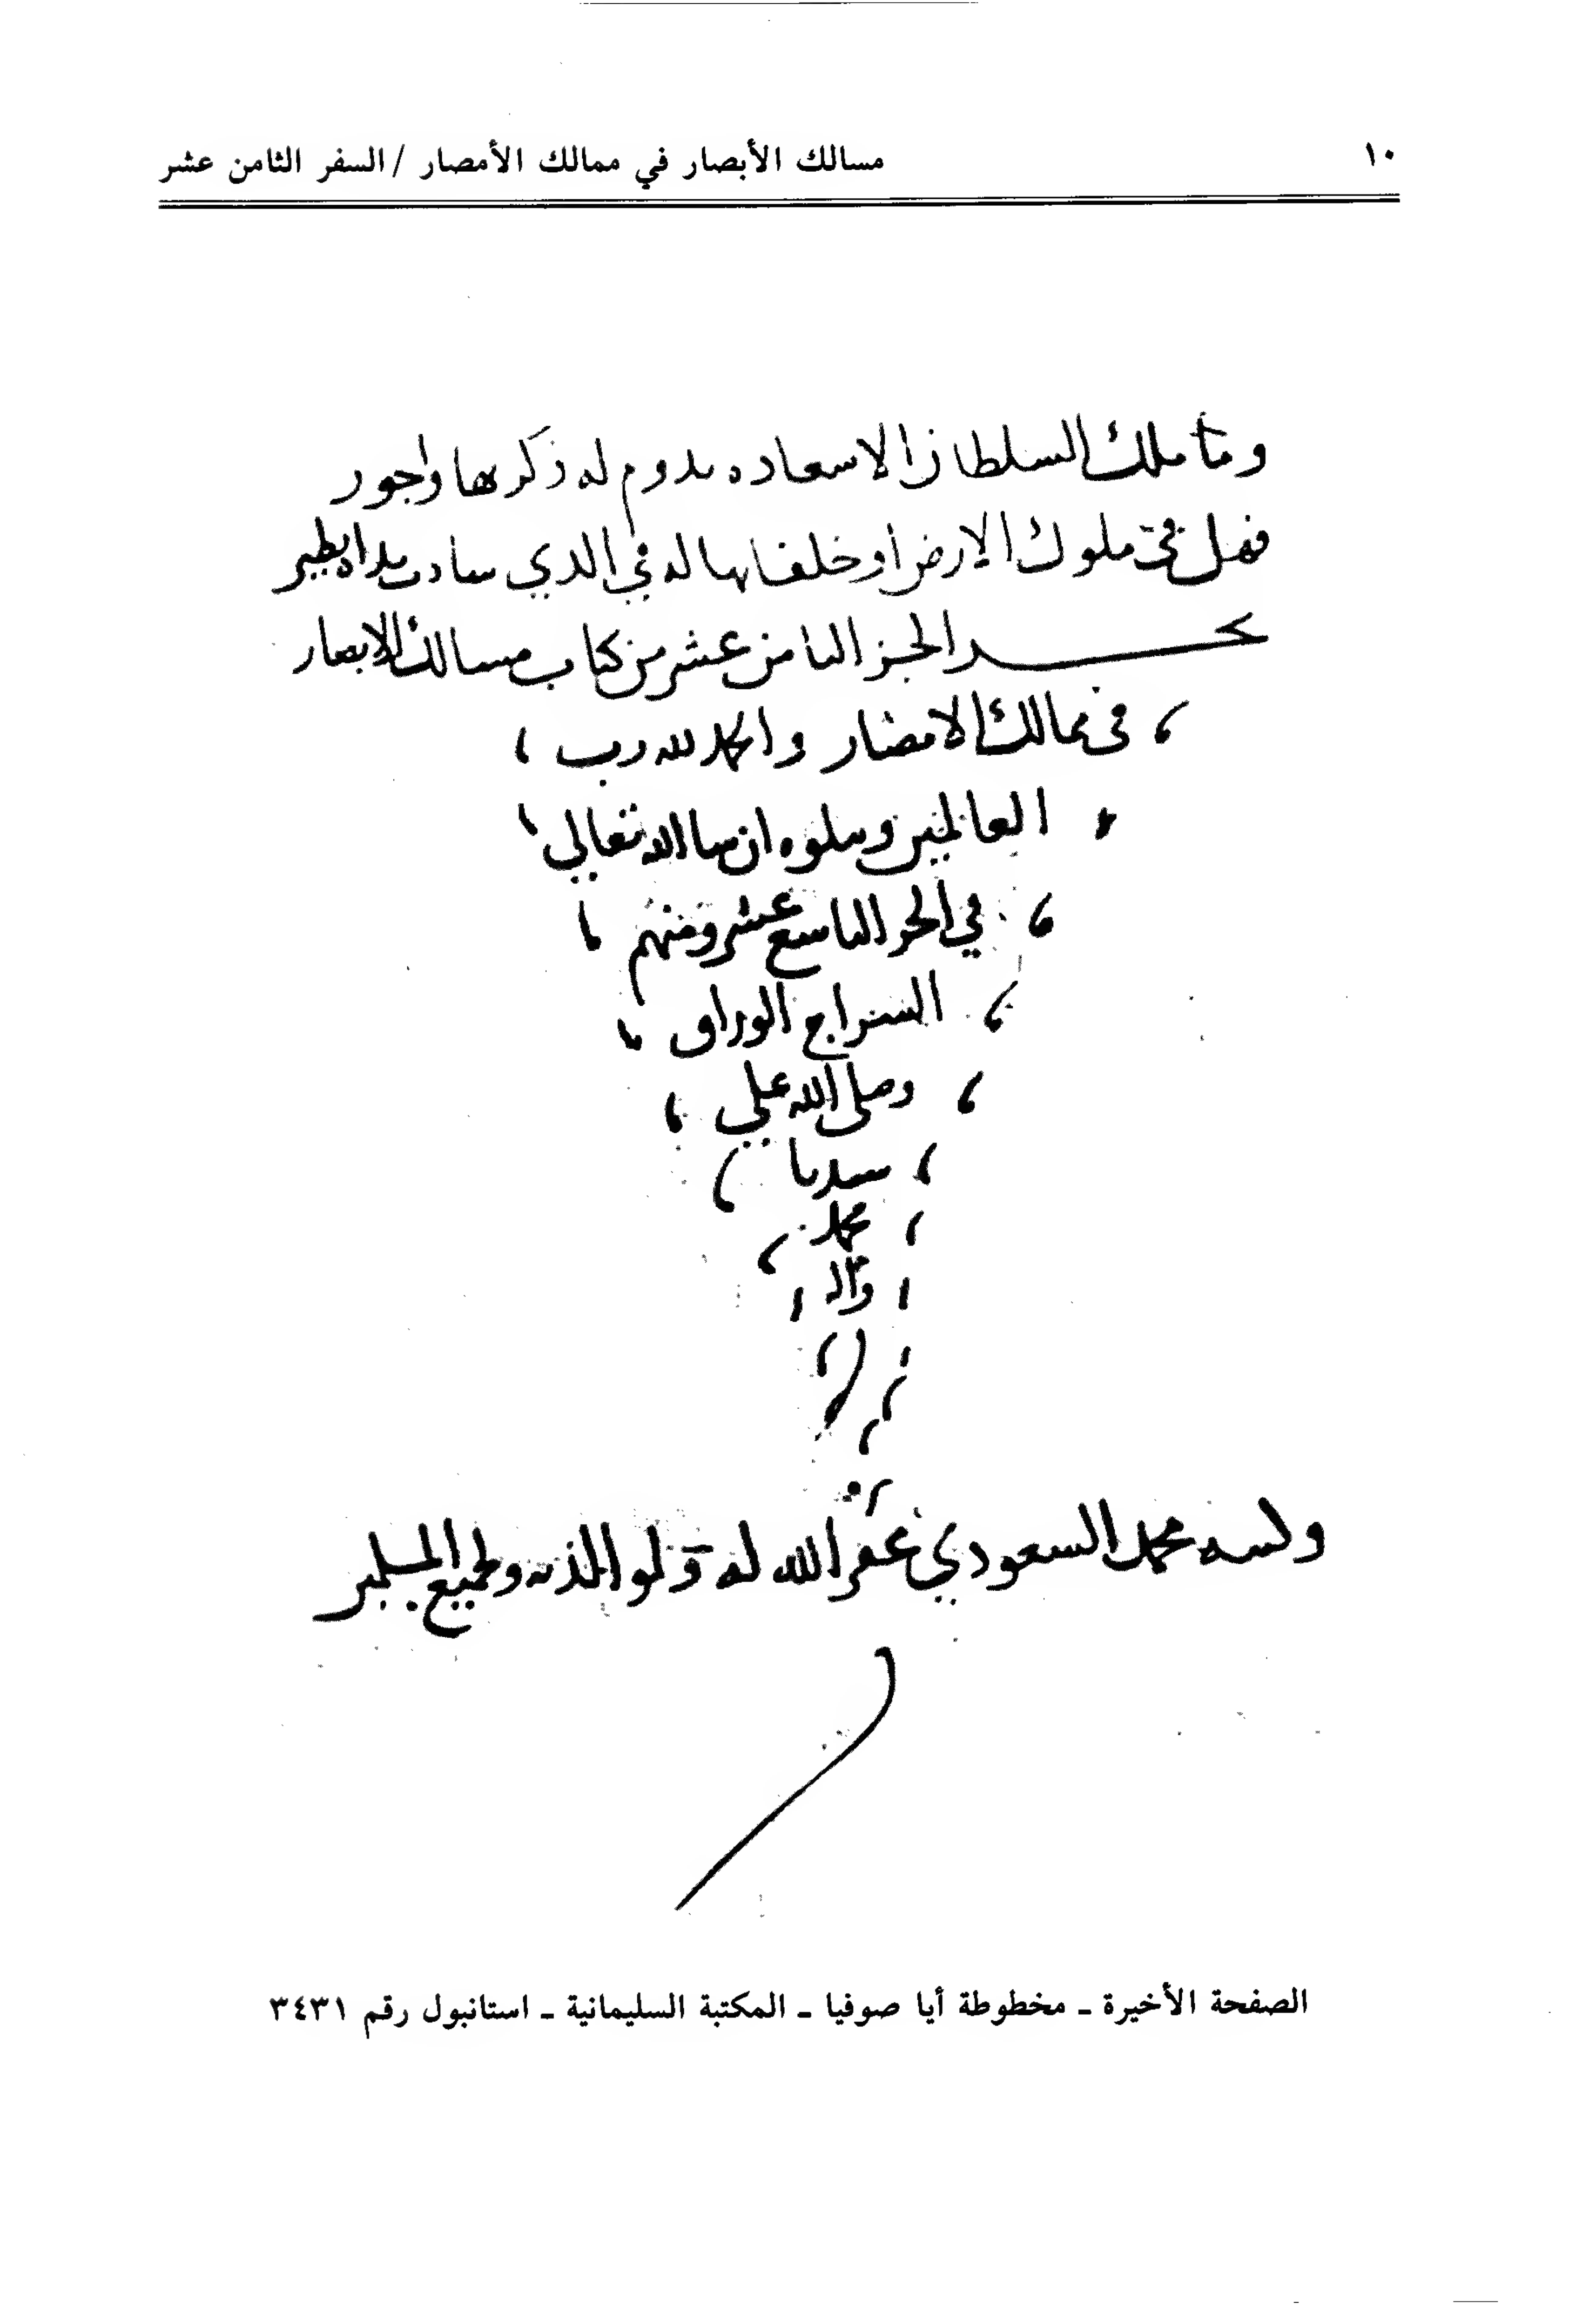 ١٠
مسالك الأبصار في ممالك الأمصار / السفر الثامن عشر
وما ملك السلطان الا سعاده يدوم له ذكر بها واجور
فهل في ملوك الارض أو خلفايها له في الذي سادت يداه نظير
نجــــز الجز الثامن عشر من كتاب مسالك الابصار
في ممالك الامصار والحمد لله رب
العالمين ويتلوه ان شا الله تعالى
في الجز التاسع عشر ومنهم
السراج الوراق
وصلى الله على
سيدنا
محمد
وآله
محمد السعودي غفر الله له ولوالديه ولجميع المسلمين
الصفحة الأخيرة ـ مخطوطة أيا صوفيا ـ المكتبة السليمانية ـ استانبول رقم ٣٤٣١